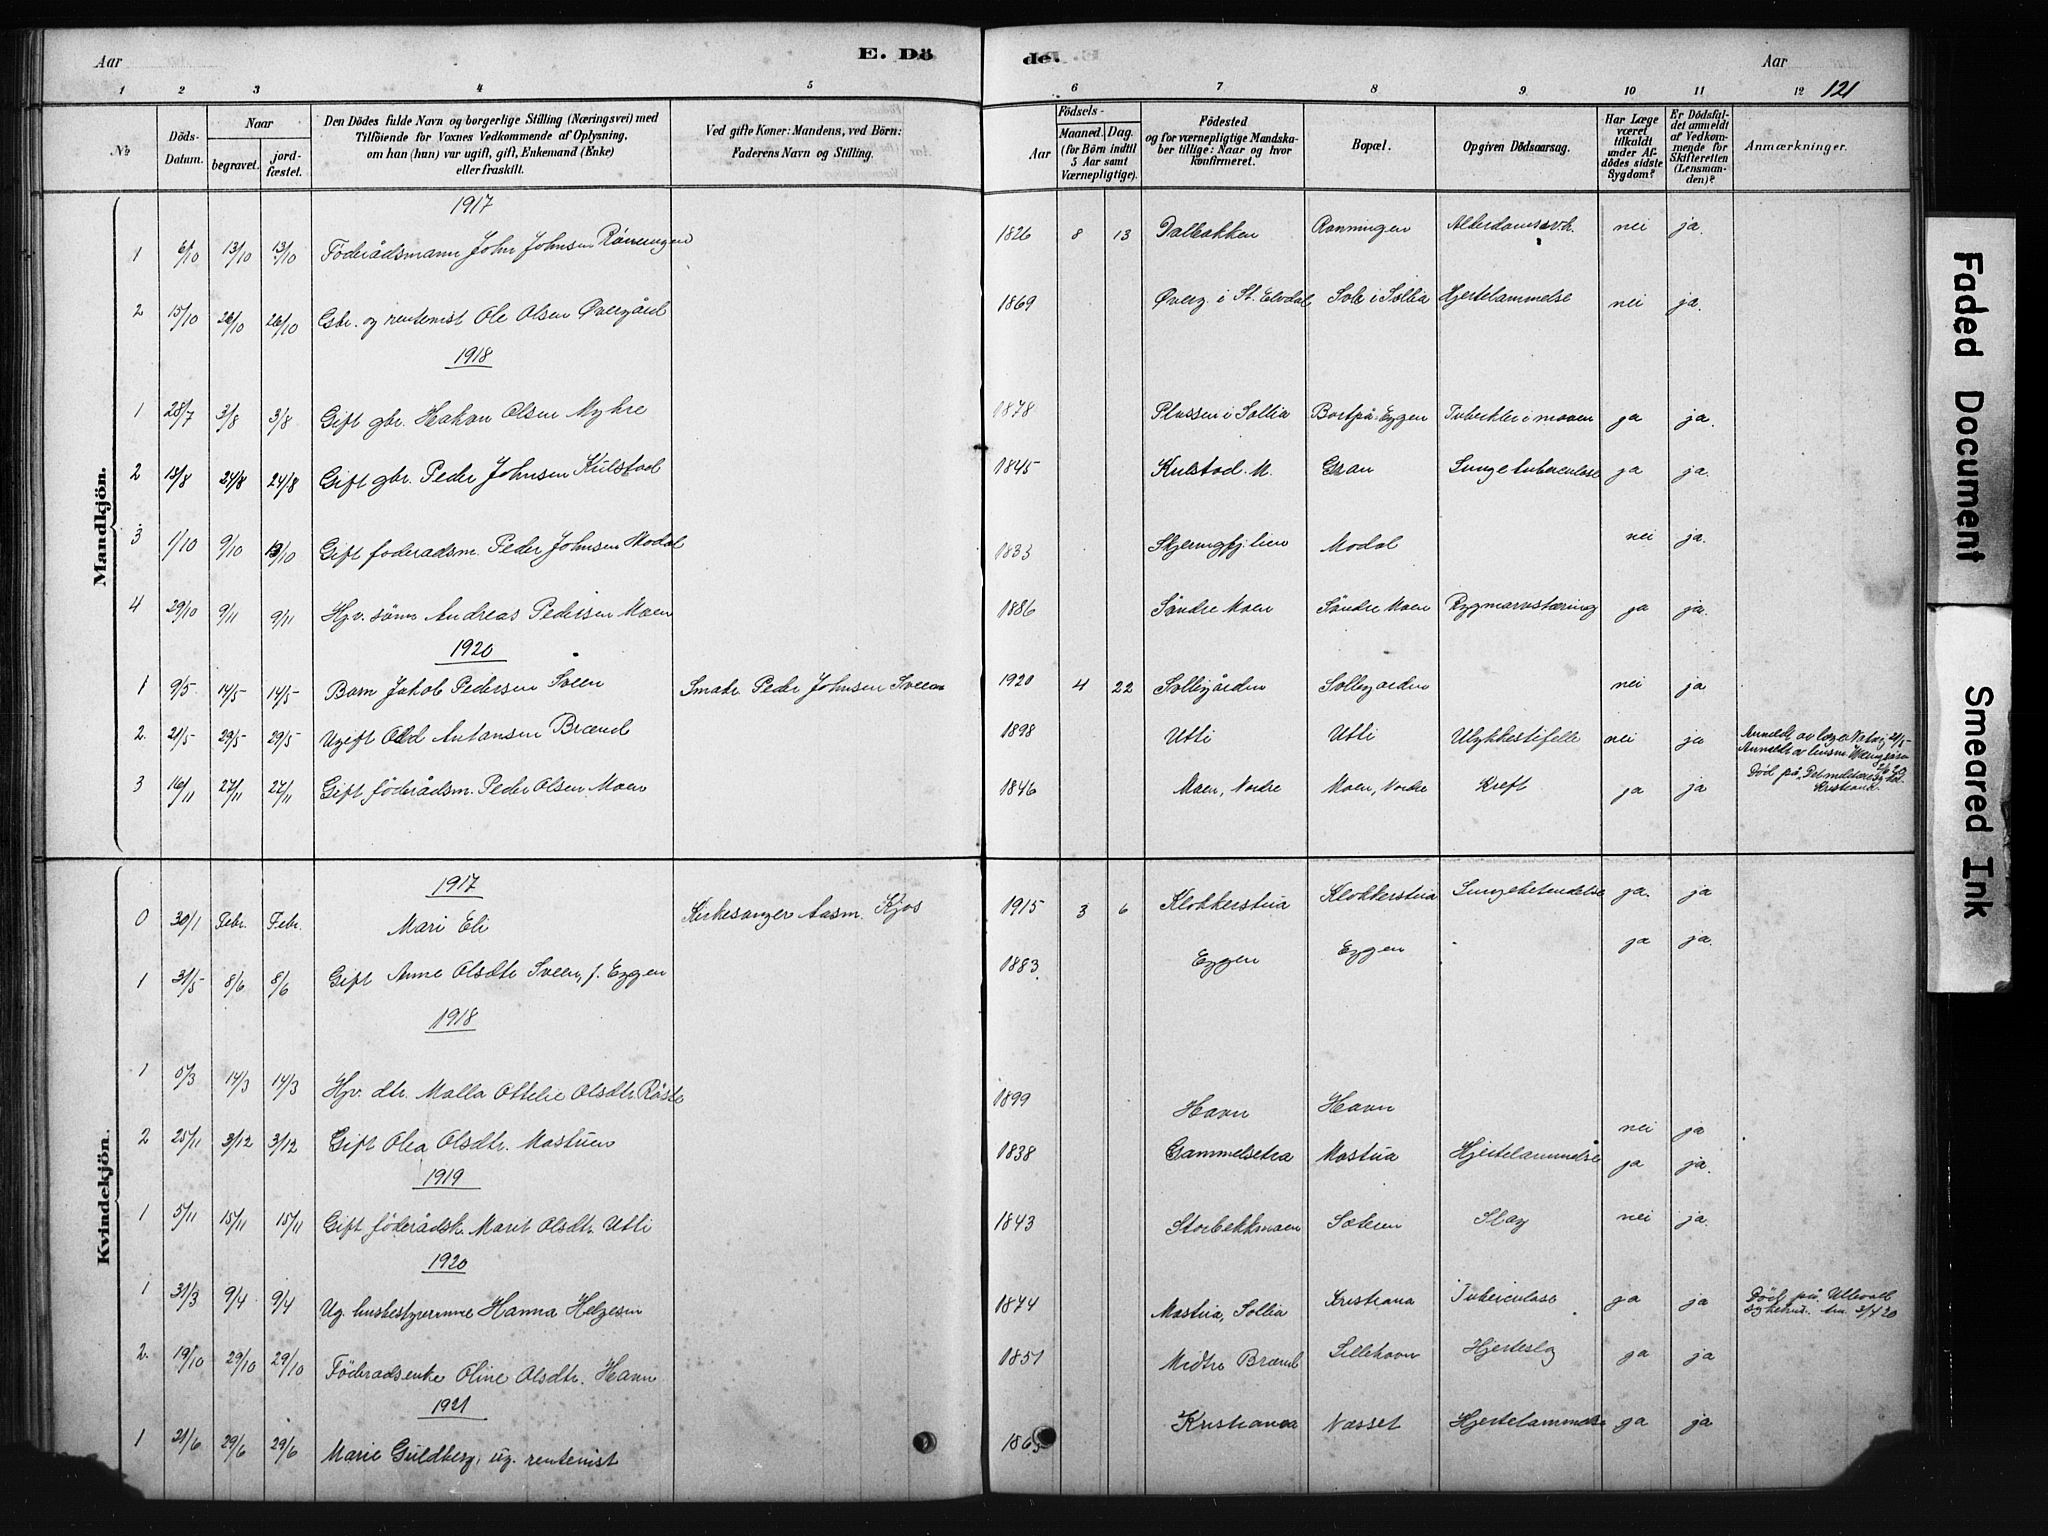 Aar
E. Dö
de.
Aar
121
1 2 3 4 5 6 7 8 9 10 11 12
No
Döds-Datum.
Naar
begravet.
jordfæstet.
Den Dödes fulde Navn og borgerlige Stilling (Næringsvei) med
Tilföiende for Voxnes Vedkommende af Oplysning,
om han (hun) var ugift, gift, Enkemand (Enke)
eller fraskilt.
Ved gifte Koner: Mandens, ved Börn:
Faderens Navn og Stilling.
Födsels-
Aar
Maaned. Dag.
(for Börn indtil
5 Aar samt
Værnepligtige).
Födested
og for værnepligtige Mandska-
ber tillige: Naar og hvor
konfirmeret.
Bopæl.
Opgiven Dödsaarsag.
Har Læge
været
tilkaldt
under Af-
dödes sidste
Sygdom?
Er Dödsfal-
det anmeldt
af Vedkom-
mende for
Skifteretten
(Lensman-
den)?
Anmærkninger.
Mandkjön.
1917
1 6/10 13/10 13/10 Föderådsmann John Johnsen Rönningen 1826 8 13 Dalbakken Rönningen nei ja.
2 15/10 26/10 26/10 Gbr. og rentenist Ole Olsen Övergård 1869 Øverg. i St. Elvdal Sole i Sollia Hjertelammelse nei ja.
1918
1 28/7 3/8 3/8 Gift gbr. Hakon Olsen Myhre 1878 Plassen i Sollia Bortpå-Eggen Tuberkler i maven ja ja.
2 18/8 24/8 24/8 Gift gbr. Peder Johnsen Kulstad 1845 Kulstad. M. Gran Lungetuberculose ja ja.
3 1/10 9/10 13/10 Gift föderadsm. Peder Johnsen Modal 1833 Modal nei ja.
4 29/10 9/11 9/11 Hjv. sönn Andreas Pedersen Moen 1886 Söndre Moen Söndre Moen Rygmarvstæring ja ja.
1920
1 9/5 14/5 14/5 Barn Jakob Pedersen Sveen Småbr. Peder Johnsen Sveen 1920 4 22 Solligården Solligarden nei ja
2. 21/5 29/5 29/5 Ugift Odd Antonsen Brænd 1898 Utti Utti Ulykkestifelle nei ja
3 16/11 27/11 27/11 Gift föderådsm. Peder Olsen Moen 1846 Moen, Nordre Moen, Nordre Kreft ja ja Död på
Kvindekjön.
1917
0 30/1 Febr. Febr. Mari Eli Kirkesanger Aasm. Kjos 1915 3 6 Klokkerstua Klokkerstua Lungebetendelse ja. ja
1 31/5 8/6 8/6 Gift Anne Olsdtr Sveen, f. Eggen 1883 Eggen Eggen ja ja.
1918
1 5/3 14/3 14/3 Hjv. dtr. Malla Ottelie Olsdtr. Röste 1899 Havn Havn nei ja
2 25/11 3/12 3/12 Gift Olea Olsdtr. Mastuen 1838 Gammelsetra Mastua Hjertelammelse ja ja.
1919
1 5/11 15/11 15/11 Gift föderådsk. Marit Olsdtr. Utti 1843 Storbekkmoen Sæteren Slag nei ja.
1920
1 31/3 9/4 9/4 Ug. husbestyrerinne Hanna Helgesen 1874 Mastua, Sollia Kristiania Tuberculose ja ja Död på Ullevoll sykehus.
2. 19/10 29/10 29/10 Föderadsenke Oline Olsdtr. Havn 1851 Midtre Brænd Lillehavn Hjerteslag ja ja
1921
1 21/6 29/6 29/6 Marie Guldberg, ug. rentenist 1865 Kristiania Næsset Hjertelammelse ja ja
Faded Document
Smeared Ink